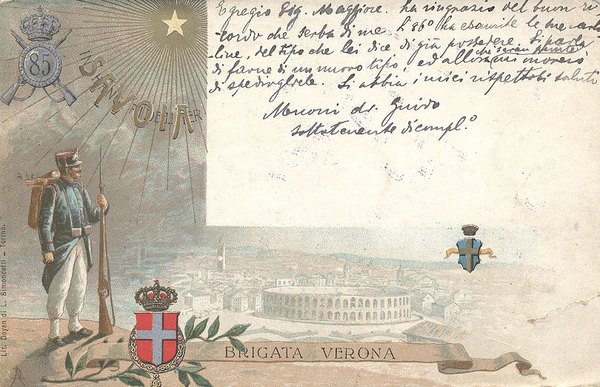 85
SAVOJA
Egregio Sig. Maggiore. La ringrazio del buon ri-
cordo che serba di me. L'86° ha esaurite le sue carto-
line, del tipo che lei dice di già possedere. Si parla
di farne di un nuovo tipo, ed allora mi
di spedirgliele. Si abbia i miei rispettosi saluti
Menoni dr. Guido
Sottotenente di compl.º
Lit. Doyen di L. Simondetti - Torino.
BRIGATA VERONA